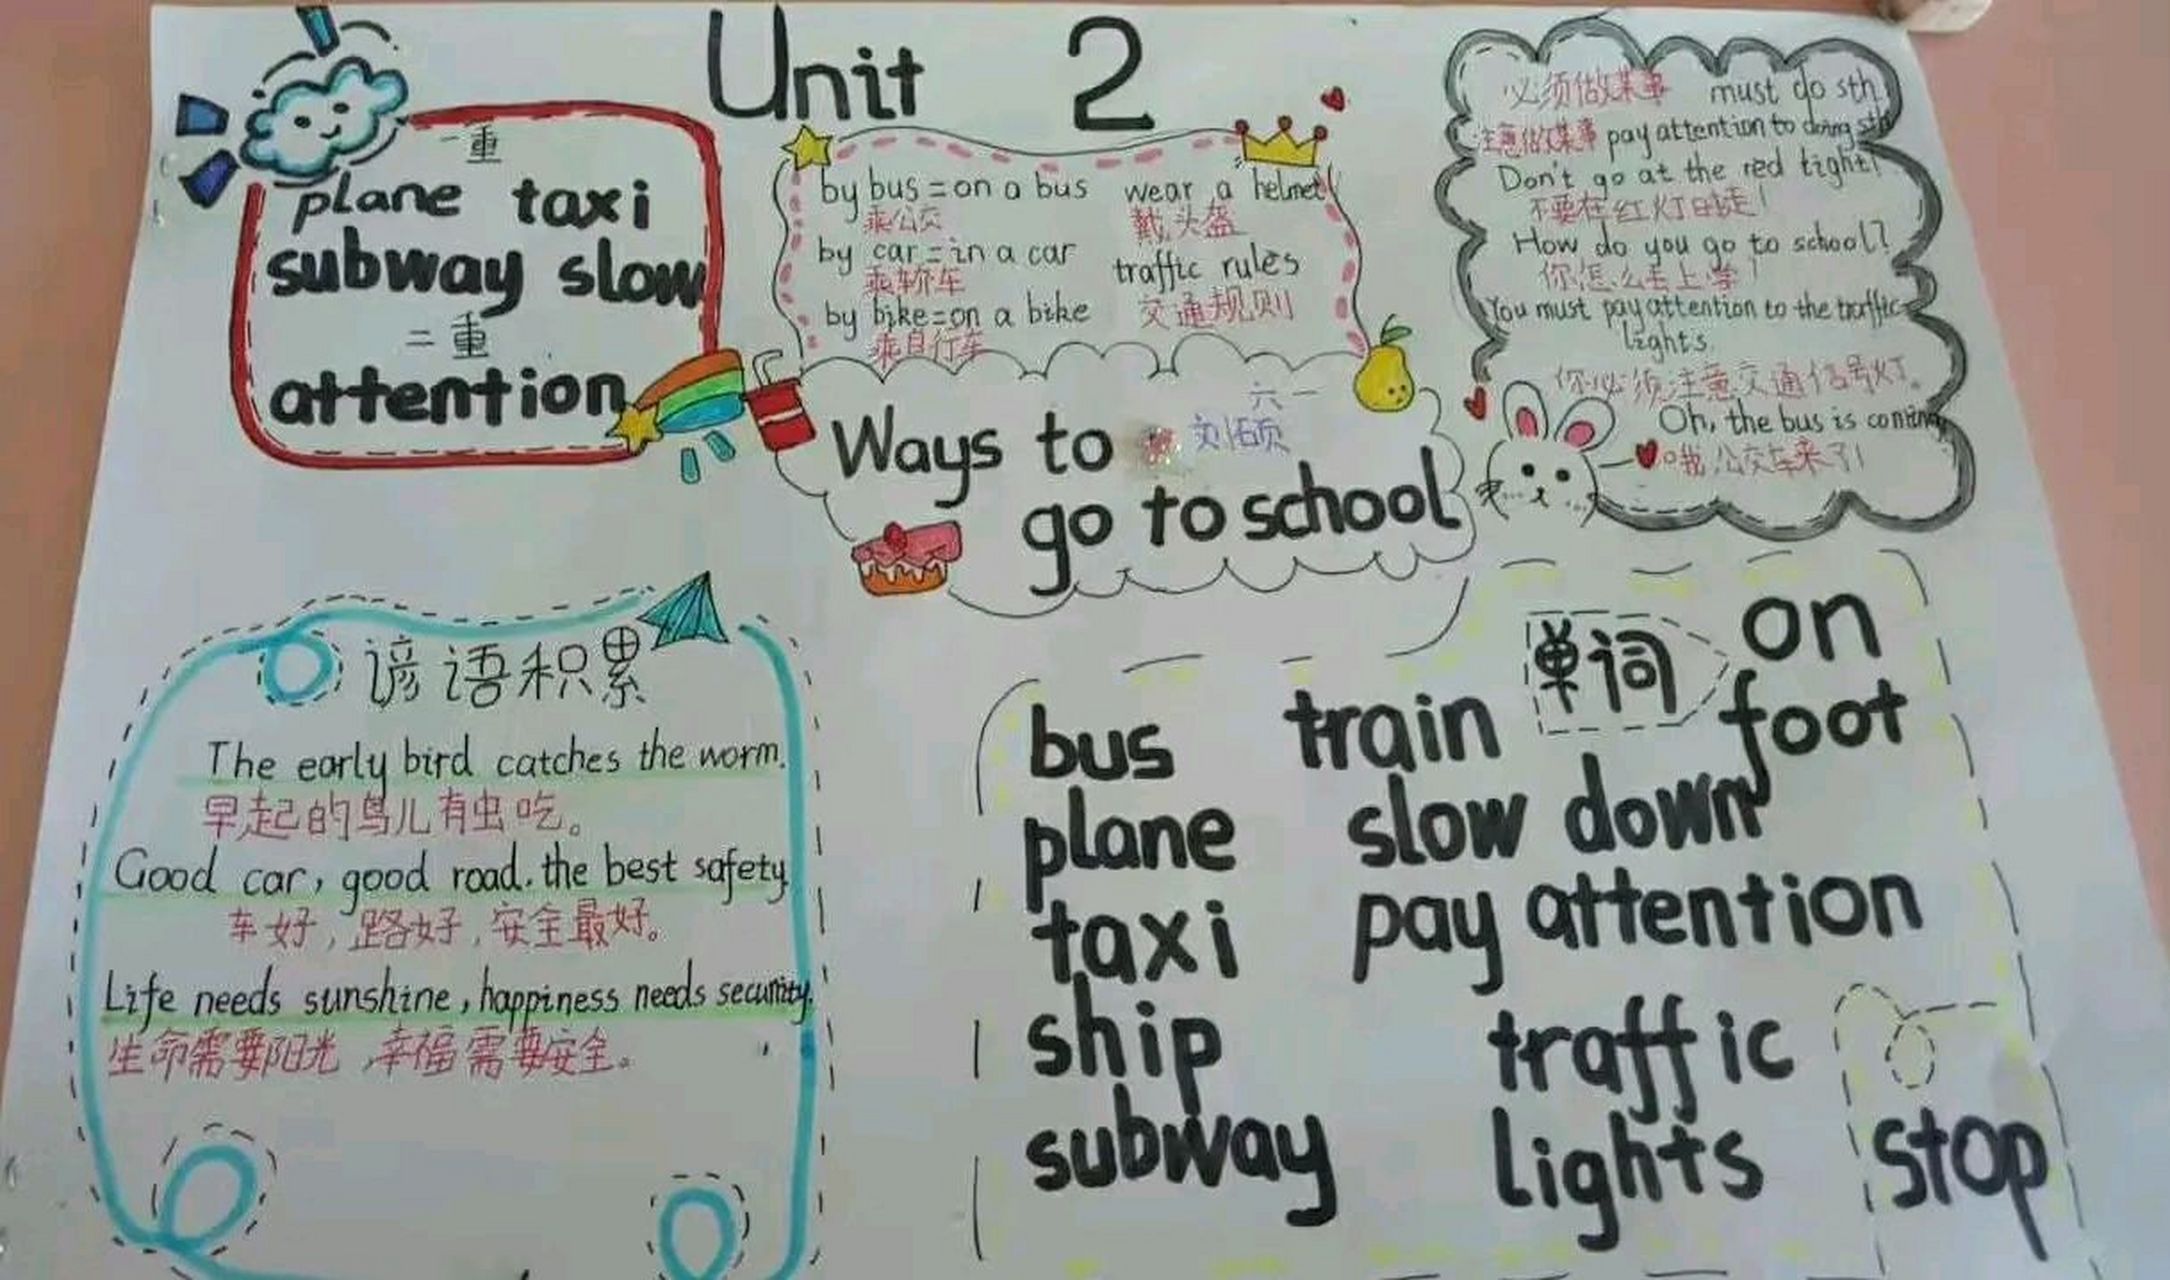 Unit 2
一重
plane taxi
subway slow
二重
attention
by bus=on a bus
乘公交
by car=in a car
乘轿车
by bike=on a bike
乘自行车
wear a helmet
戴头盔
traffic rules
交通规则
必须做某事 must do sth
注意做某事 pay attention to doing sth
Don't go at the red tight!
不要在红灯时走!
How do you go to school?
你怎么去上学!
You must pay attention to the traffic
lights.
你必须注意交通信号灯。
Oh, the bus is coming
哦公交车来了!
六一
Ways to
go to school
谚语积累
The early bird catches the worm.
早起的鸟儿有虫吃。
Good car, good road. the best safety
车好,路好,安全最好。
Life needs sunshine, happiness needs security.
生命需要阳光 幸福需要安全。
单词
on
foot
bus train
plane slow down
taxi pay attention
ship traffic
subway lights stop